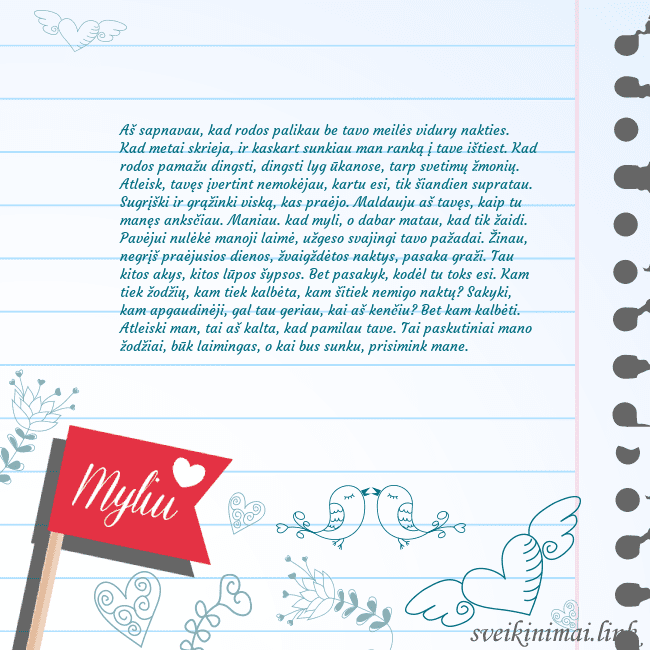 Aš sapnavau, kad rodos palikau be tavo meilės vidury nakties.
Kad metai skrieja, ir kaskart sunkiau man ranką į tave ištiest. Kad
rodos pamažu dingsti, dingsti lyg ūkanose, tarp svetimų žmonių.
Atleisk, tavęs įvertint nemokėjau, kartu esi, tik šiandien supratau.
Sugrįški ir grąžinki viską, kas praėjo. Maldauju aš tavęs, kaip tu
manęs anksčiau. Maniau. kad myli, o dabar matau, kad tik žaidi.
Pavėjui nulėkė manoji laimė, užgeso svajingi tavo pažadai. Žinau,
negrįš praėjusios dienos, žvaigždėtos naktys, pasaka graži. Tau
kitos akys, kitos lūpos šypsos. Bet pasakyk, kodėl tu toks esi. Kam
tiek žodžių, kam tiek kalbėta, kam šitiek nemigo naktų? Sakyki,
kam apgaudinėji, gal tau geriau, kai aš kenčiu? Bet kam kalbėti.
Atleiski man, tai aš kalta, kad pamilau tave. Tai paskutiniai mano
žodžiai, būk laimingas, o kai bus sunku, prisimink mane.
Myliu
sveikinimai.link